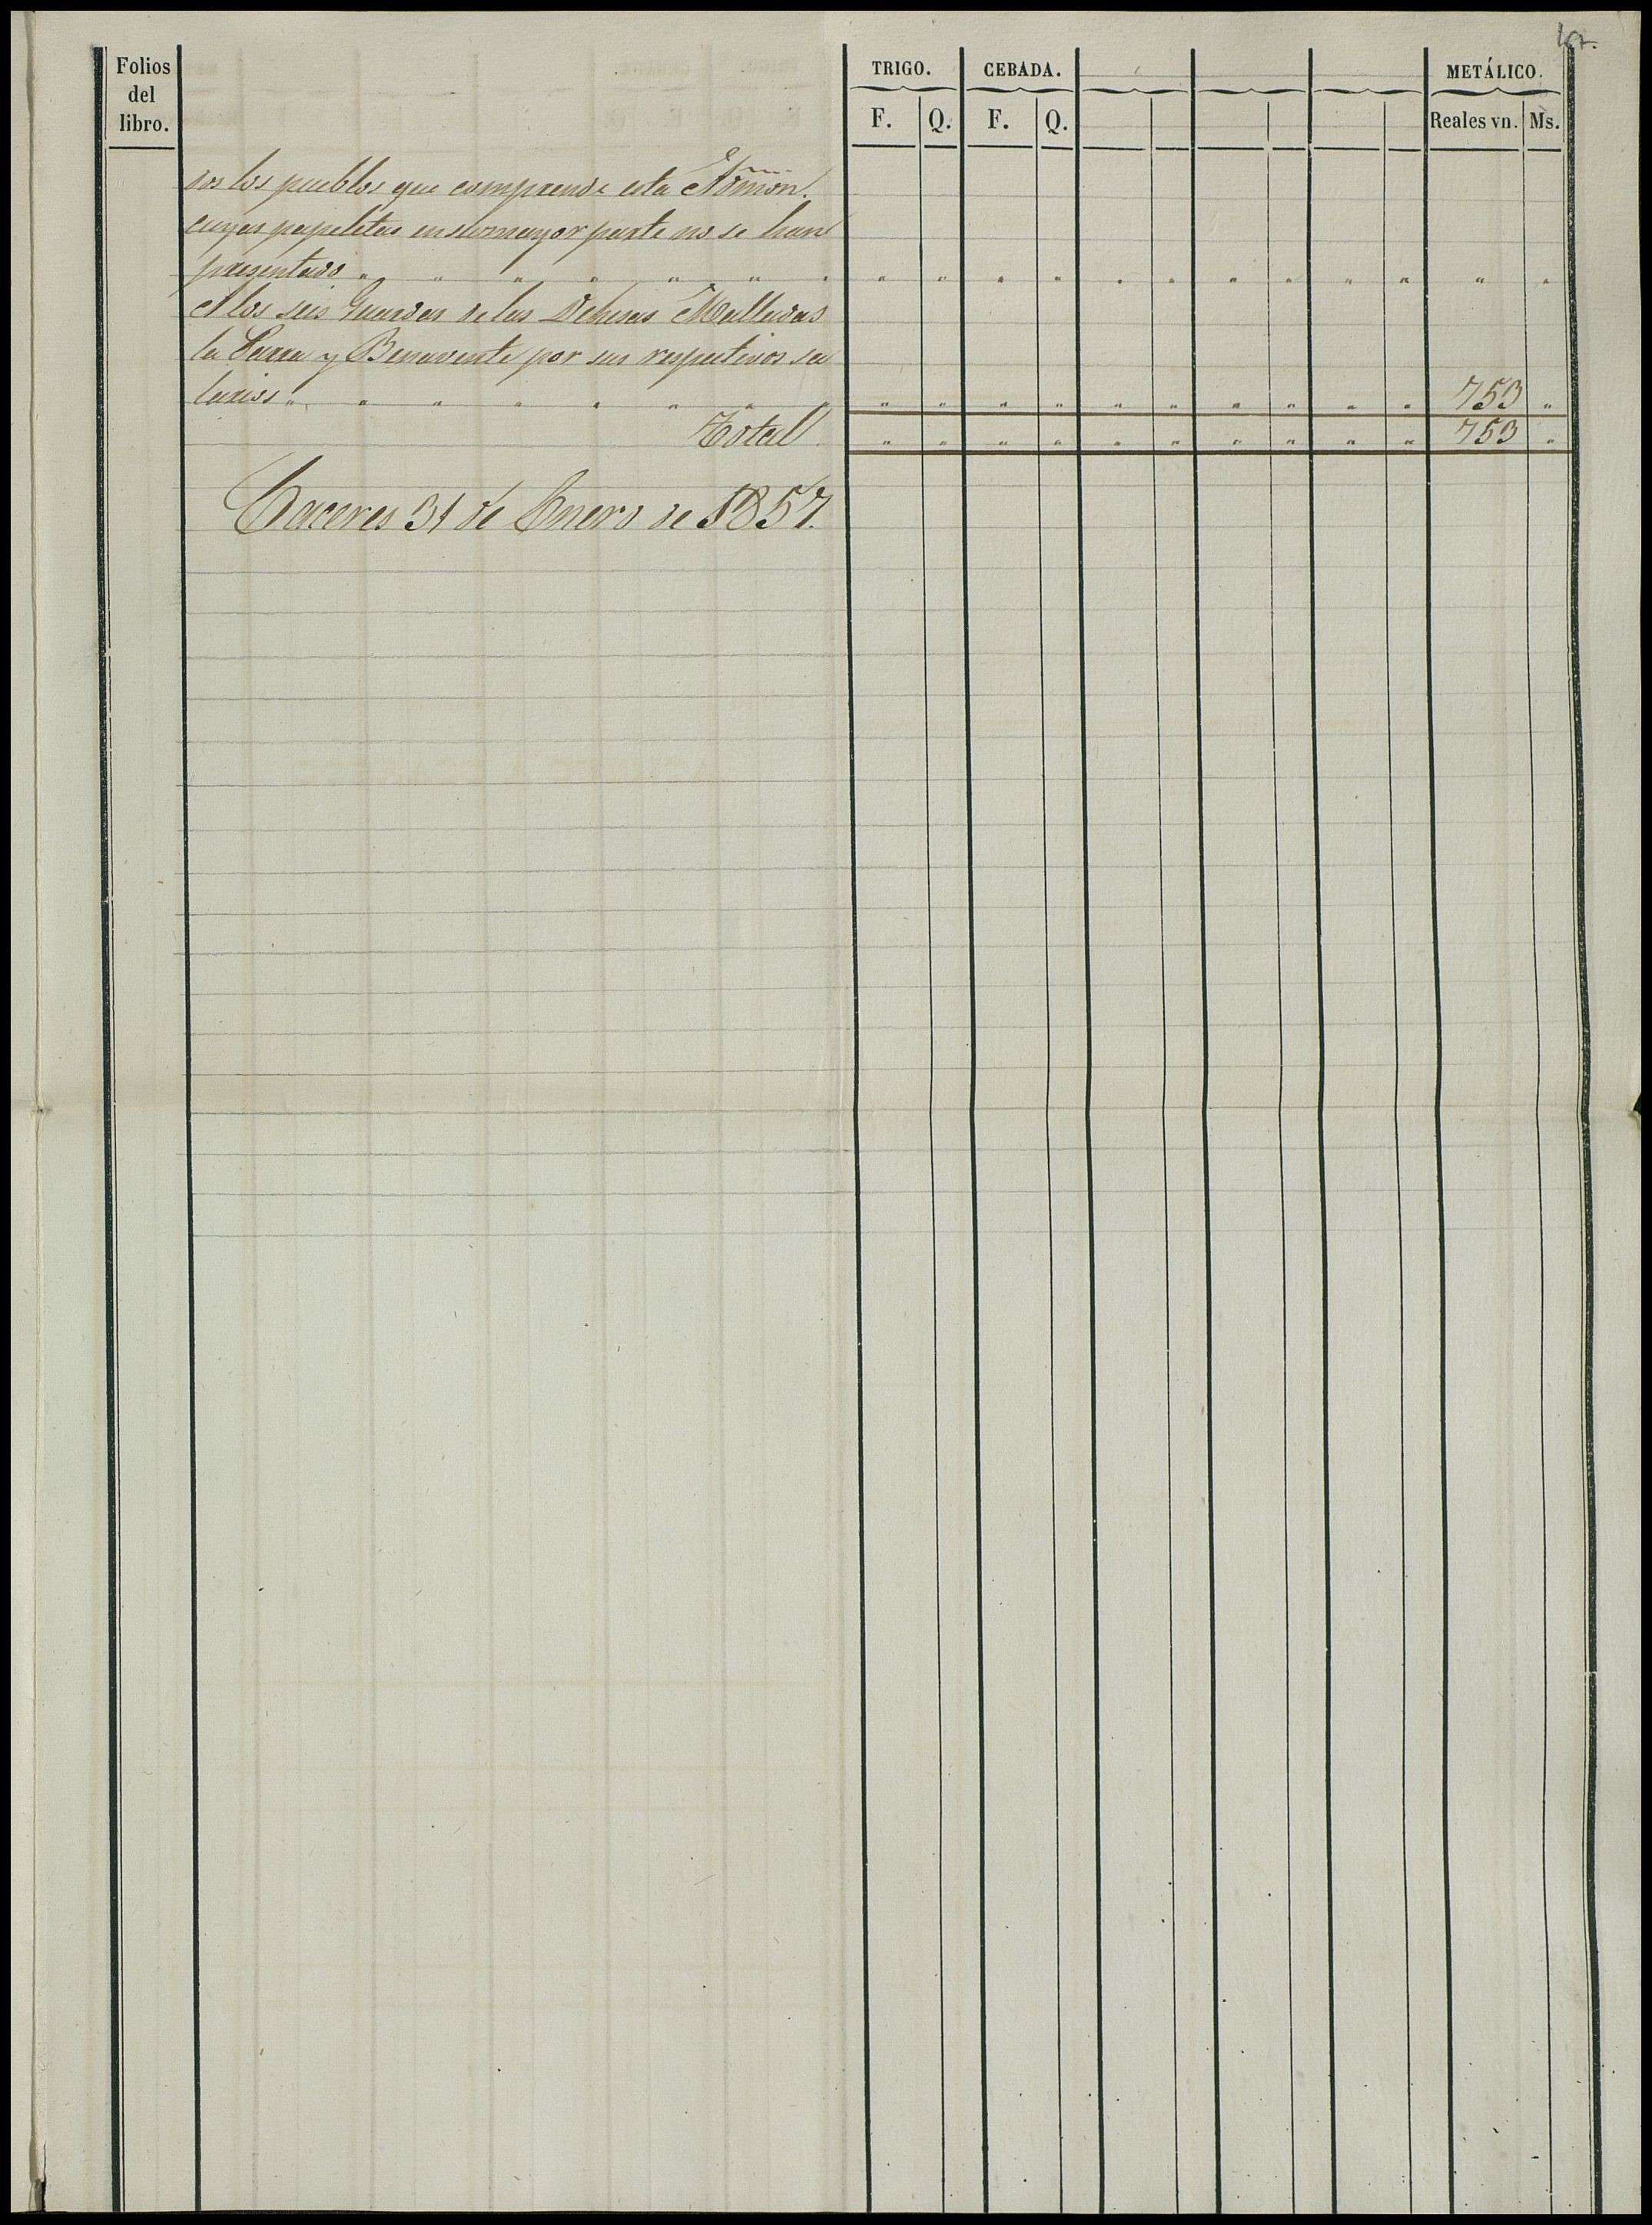 Folios
del
libro.
TRIGO. CEBADA. METÁLICO.
F. Q. F. Q. Reales vn. Ms.
dos los pueblos que comprende esta Admon.
cuyas papeletas en su mayor parte no se han
presentado " " " " " " " " " " " " " " " " " " "
A los seis Guardas de las Dehesas Malladas
la Parra y Benavente por sus respectivos sa
larios " " " " " " " " " " " " " " " " " " 753 "
Total. " " " " " " " " " " 753 "
Caceres 31 de Enero de 1857.